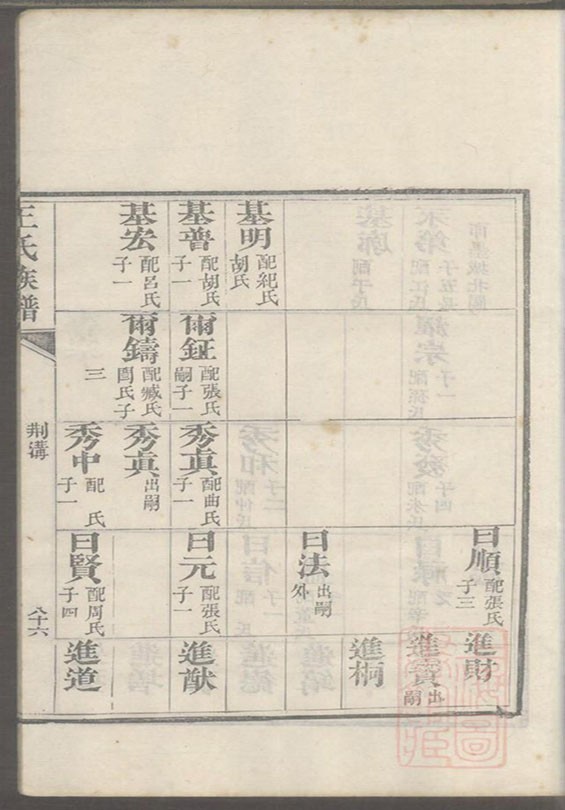 基明 配紀氏 胡氏
基普 配胡氏 子一
基宏 配呂氏 子一
爾鉦 配張氏 嗣子一
爾鑄 配臧氏 閻氏子 三
秀真 配曲氏 子一
秀真 出嗣
秀中 配 氏 子一
曰順 配張氏 子三
曰法 出嗣 外
曰元 配張氏 子一
曰賢 配周氏 子四
進財
進寶 出嗣
進桐
進猷
進道
王氏族譜
荆溝
八十六